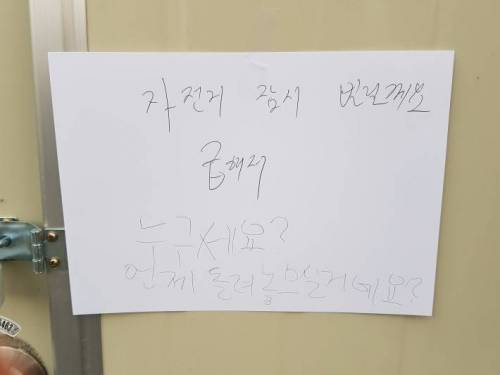 자전거 잠시 빌린께요
급해서
누구세요?
언제 돌려놓으실거예요?